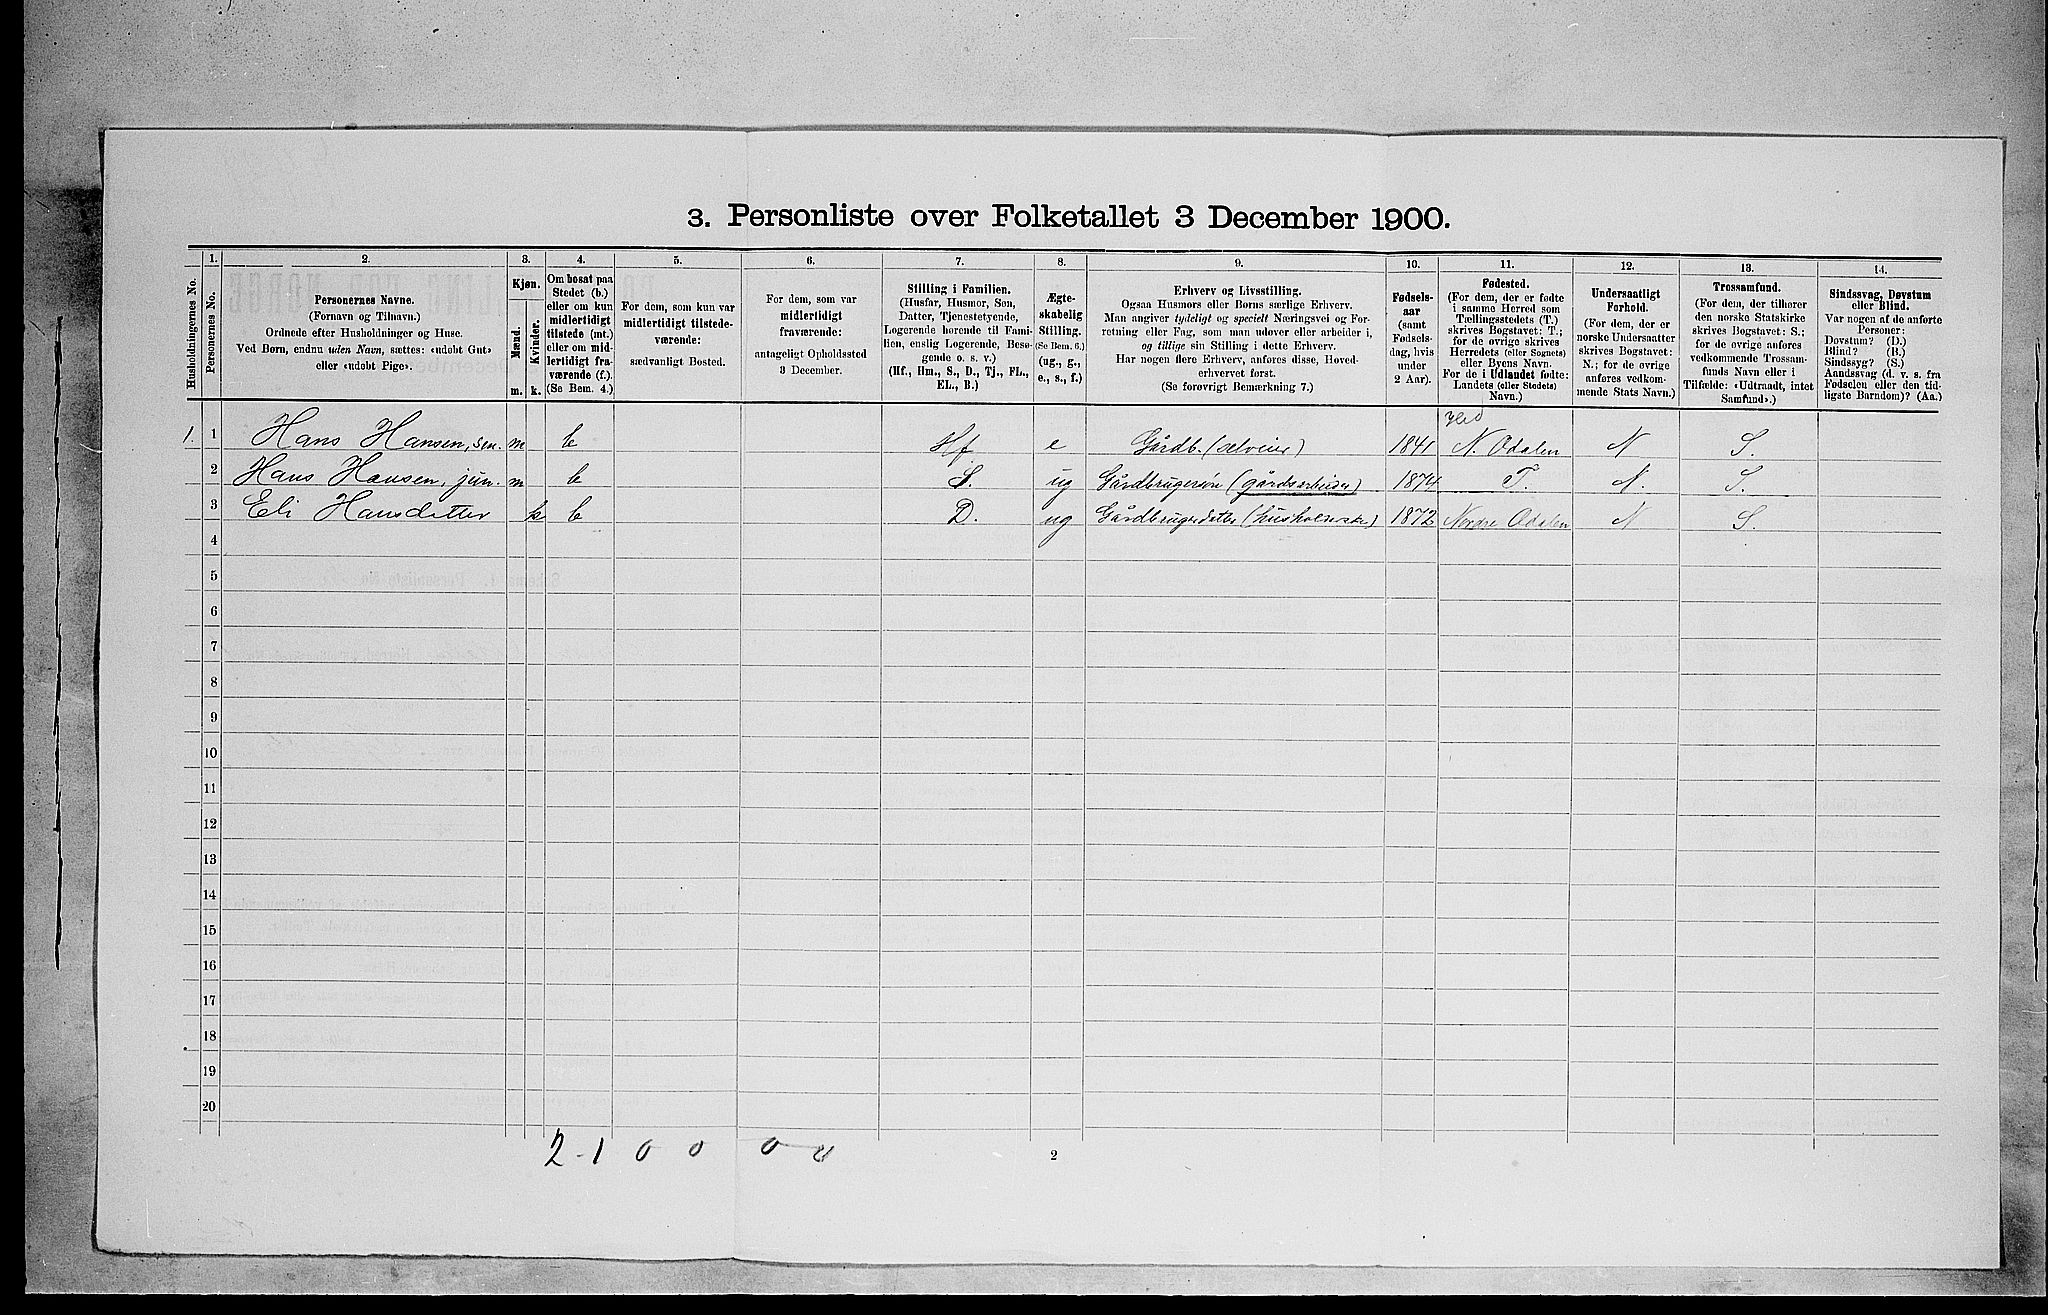 3. Personliste over Folketallet 3 December 1900.
1. 2. 3. 4. 5. 6. 7. 8. 9. 10. 11. 12. 13. 14.
Husholdningernes No.
Personernes No.
Personernes Navne.
(Fornavn og Tilnavn.)
Ordnede efter Husholdninger og Huse.
Ved Børn, endnu uden Navn, sættes: «udøbt Gut»
eller «udøbt Pige».
Kjøn.
Mænd.
Kvinder.
m. k.
Om bosat paa
Stedet (b.)
eller om kun
midlertidigt
tilstede (mt.)
eller om mid-
lertidigt fra-
værende (f.).
(Se Bem. 4.)
For dem, som kun var
midlertidigt tilstede-
værende:
sædvanligt Bosted.
For dem, som var
midlertidigt
fraværende:
antageligt Opholdssted
3 December.
Stilling i Familien.
(Husfar, Husmor, Søn,
Datter, Tjenestetyende,
Logerende hørende til Fami-
lien, enslig Logerende, Besø-
gende o. s. v.)
(Hf., Hm., S., D., Tj., FL.,
EL., B.)
Ægte-
skabelig
Stilling.
(Se Bem. 6.)
(ug., g.,
e., s., f.)
Erhverv og Livsstilling.
Ogsaa Husmors eller Børns særlige Erhverv.
Man angiver tydeligt og specielt Næringsvei og For-
retning eller Fag, som man udøver eller arbeider i,
og tillige sin Stilling i dette Erhverv.
Har nogen flere Erhverv, anføres disse, Hoved-
erhvervet først.
(Se forøvrigt Bemærkning 7.)
Fødsels-
aar
(samt
Fødsels-
dag, hvis
under
2 Aar).
Fødested.
(For dem, der er fødte
i samme Herred som
Tællingsstedets (T.)
skrives Bogstavet: T.;
for de øvrige skrives
Herredets (eller Sognets)
eller Byens Navn.
For de i Udlandet fødte:
Landets (eller Stedets)
Navn.)
Undersaatligt
Forhold.
(For dem, der er
norske Undersaatter
skrives Bogstavet:
N.; for de øvrige
anføres vedkom-
mende Stats Navn.)
Trossamfund.
(For dem, der tilhører
den norske Statskirke
skrives Bogstavet: S.;
for de øvrige anføres
vedkommende Trossam-
funds Navn eller i
Tilfælde: «Udtraadt, intet
Samfund».)
Sindssvag, Døvstum
eller Blind.
Var nogen af de anførte
Personer:
Døvstum? (D.)
Blind? (B.)
Sindssyg? (S.)
Aandssvag (d. v. s. fra
Fødselen eller den tid-
ligste Barndom)? (Aa.)
1. 1 Hans Hansen, sen. m b Hf e Gårdb. (selveier) 1841 N. Odalen N S.
2 Hans Hansen, jun. m b S. ug Gårdbrugersøn (gårdsarbeider) 1874 T. N. S.
3 Eli Hansdatter k b D. ug Gårdbrugerdatter (husholderske) 1872 Nordre Odalen N S.
4
5
6
7
8
9
10
11
12
13
14
15
16
17
18
19
20
2-1 0 0 0 0
2